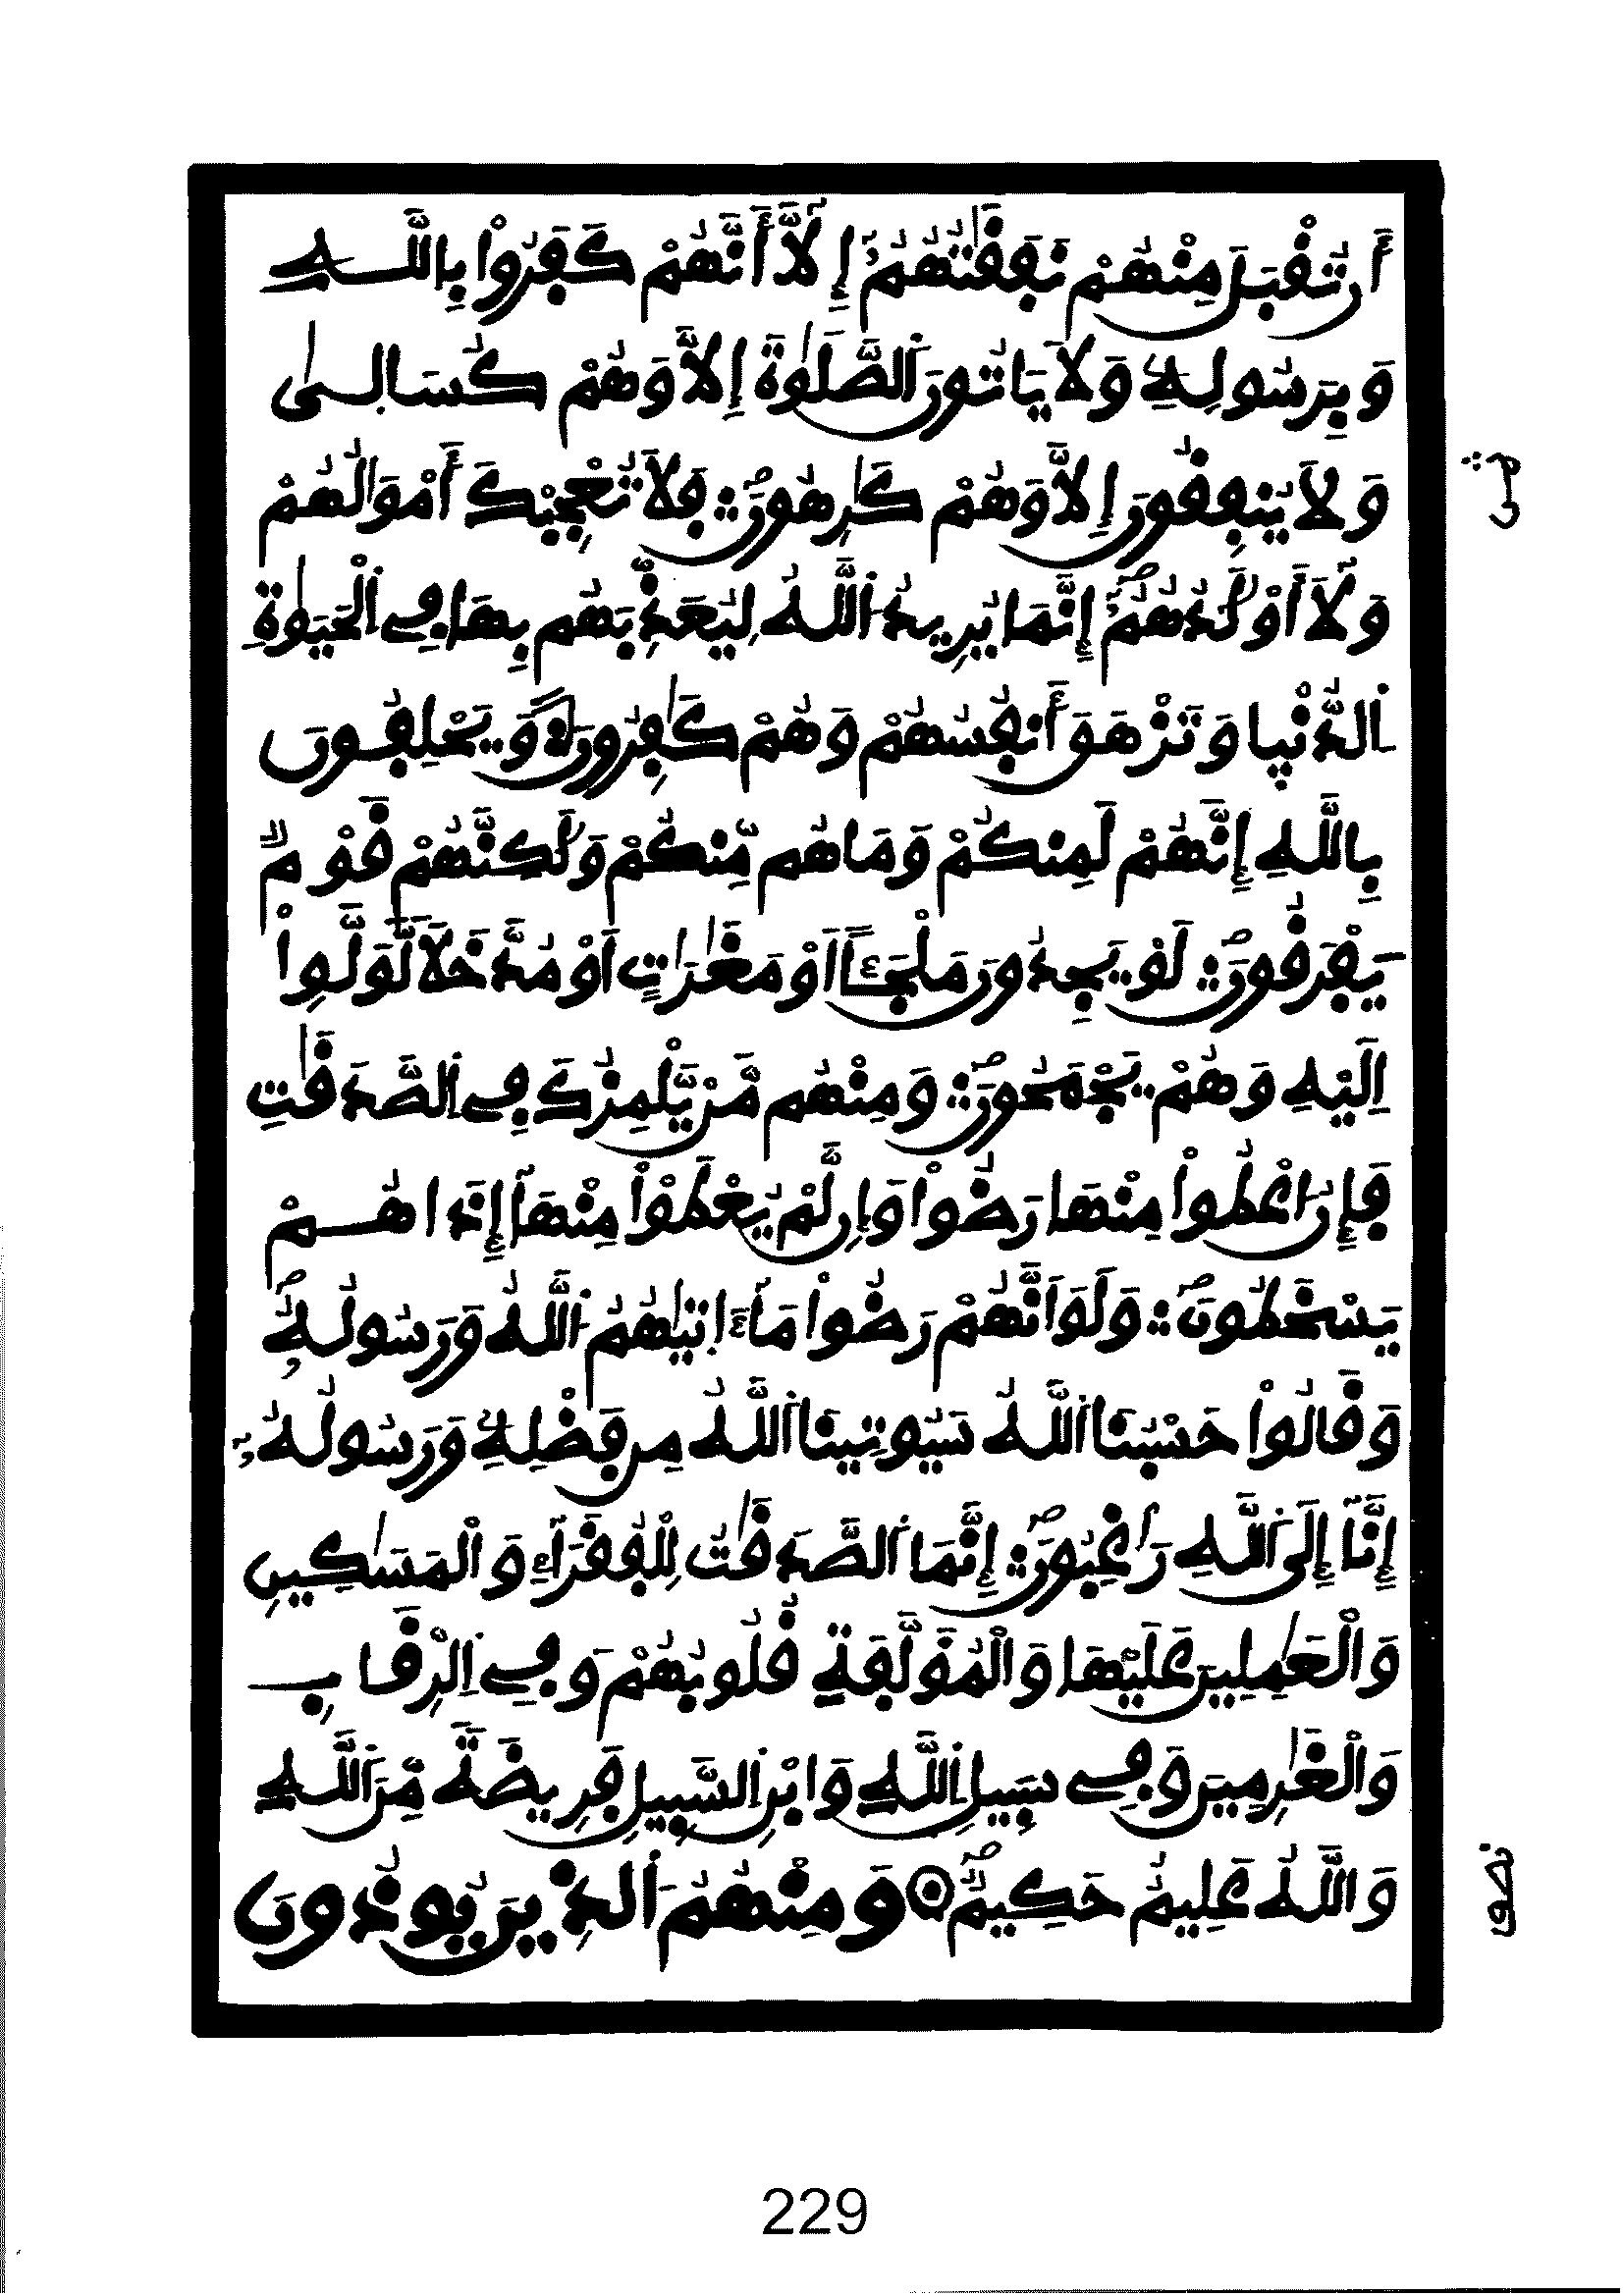 أَن تُقْبَلَ مِنْهُمْ نَفَقَٰتُهُمُۥٓ إِلَّآ أَنَّهُمْ كَفَرُوا۟ بِاللَّهِ
وَبِرَسُولِهِۦ وَلَا يَاتُونَ اَ۬لصَّلَوٰةَ إِلَّا وَهُمْ كُسَالىٰ
وَلَا يُنفِقُونَ إِلَّا وَهُمْ كَٰرِهُونَۖ فَلَا تُعْجِبْكَ أَمْوَٰلُهُمْ
وَلَآ أَوْلَٰدُهُمُۥٓۖ إِنَّمَا يُرِيدُ اُ۬للَّهُ لِيُعَذِّبَهُم بِهَا فِے اِ۬لْحَيَوٰةِ
اِ۬لدُّنْيٜا وَتَزْهَقَ أَنفُسُهُمْ وَهُمْ كَٰفِرُونَۖ وَيَحْلِفُونَ
بِاللَّهِ إِنَّهُمْ لَمِنكُمْ وَمَا هُم مِّنكُمْ وَلَٰكِنَّهُمْ قَوْمٌ
يَفْرَقُونَۖ لَوْ يَجِدُونَ مَلْجَـًٔا اَوْ مَغَٰرَٰتٍ اَوْ مُدَّخَلًا لَّوَلَّوِا۟
اِلَيْهِ وَهُمْ يَجْمَحُونَۖ وَمِنْهُم مَّنْ يَّلْمِزُكَ فِے اِ۬لصَّدَقَٰتِ
فَإِنُ ا۟عْطُوا۟ مِنْهَا رَضُوا۟ وَإِن لَّمْ يُعْطَوْا۟ مِنْهَآ إِذَا هُمْ
يَسْخَطُونَۖ وَلَوَ اَنَّهُمْ رَضُوا۟ مَآ ءَاتٜيٰهُمُ اُ۬للَّهُ وَرَسُولُهُۥۖ
وَقَالُوا۟ حَسْبُنَا اَ۬للَّهُ سَيُوتِينَا اَ۬للَّهُ مِن فَضْلِهِۦ وَرَسُولُهُۥٓ
إِنَّآ إِلَى اَ۬للَّهِ رَٰغِبُونَۖ إِنَّمَا اَ۬لصَّدَقَٰتُ لِلْفُقَرَآءِ وَالْمَسَٰكِينِ
وَالْعَٰمِلِينَ عَلَيْهَا وَالْمُؤَلَّفَةِ قُلُوبُهُمْ وَفِے اِ۬لرِّقَابِ
وَالْغَٰرِمِينَ وَفِے سَبِيلِ اِ۬للَّهِ وَابْنِ اِ۬لسَّبِيلِ فَرِيضَةً مِّنَ اَ۬للَّهِ
وَاللَّهُ عَلِيمٌ حَكِيمٌۖ ۝ وَمِنْهُمُ اُ۬لذِينَ يُوذُونَ
229